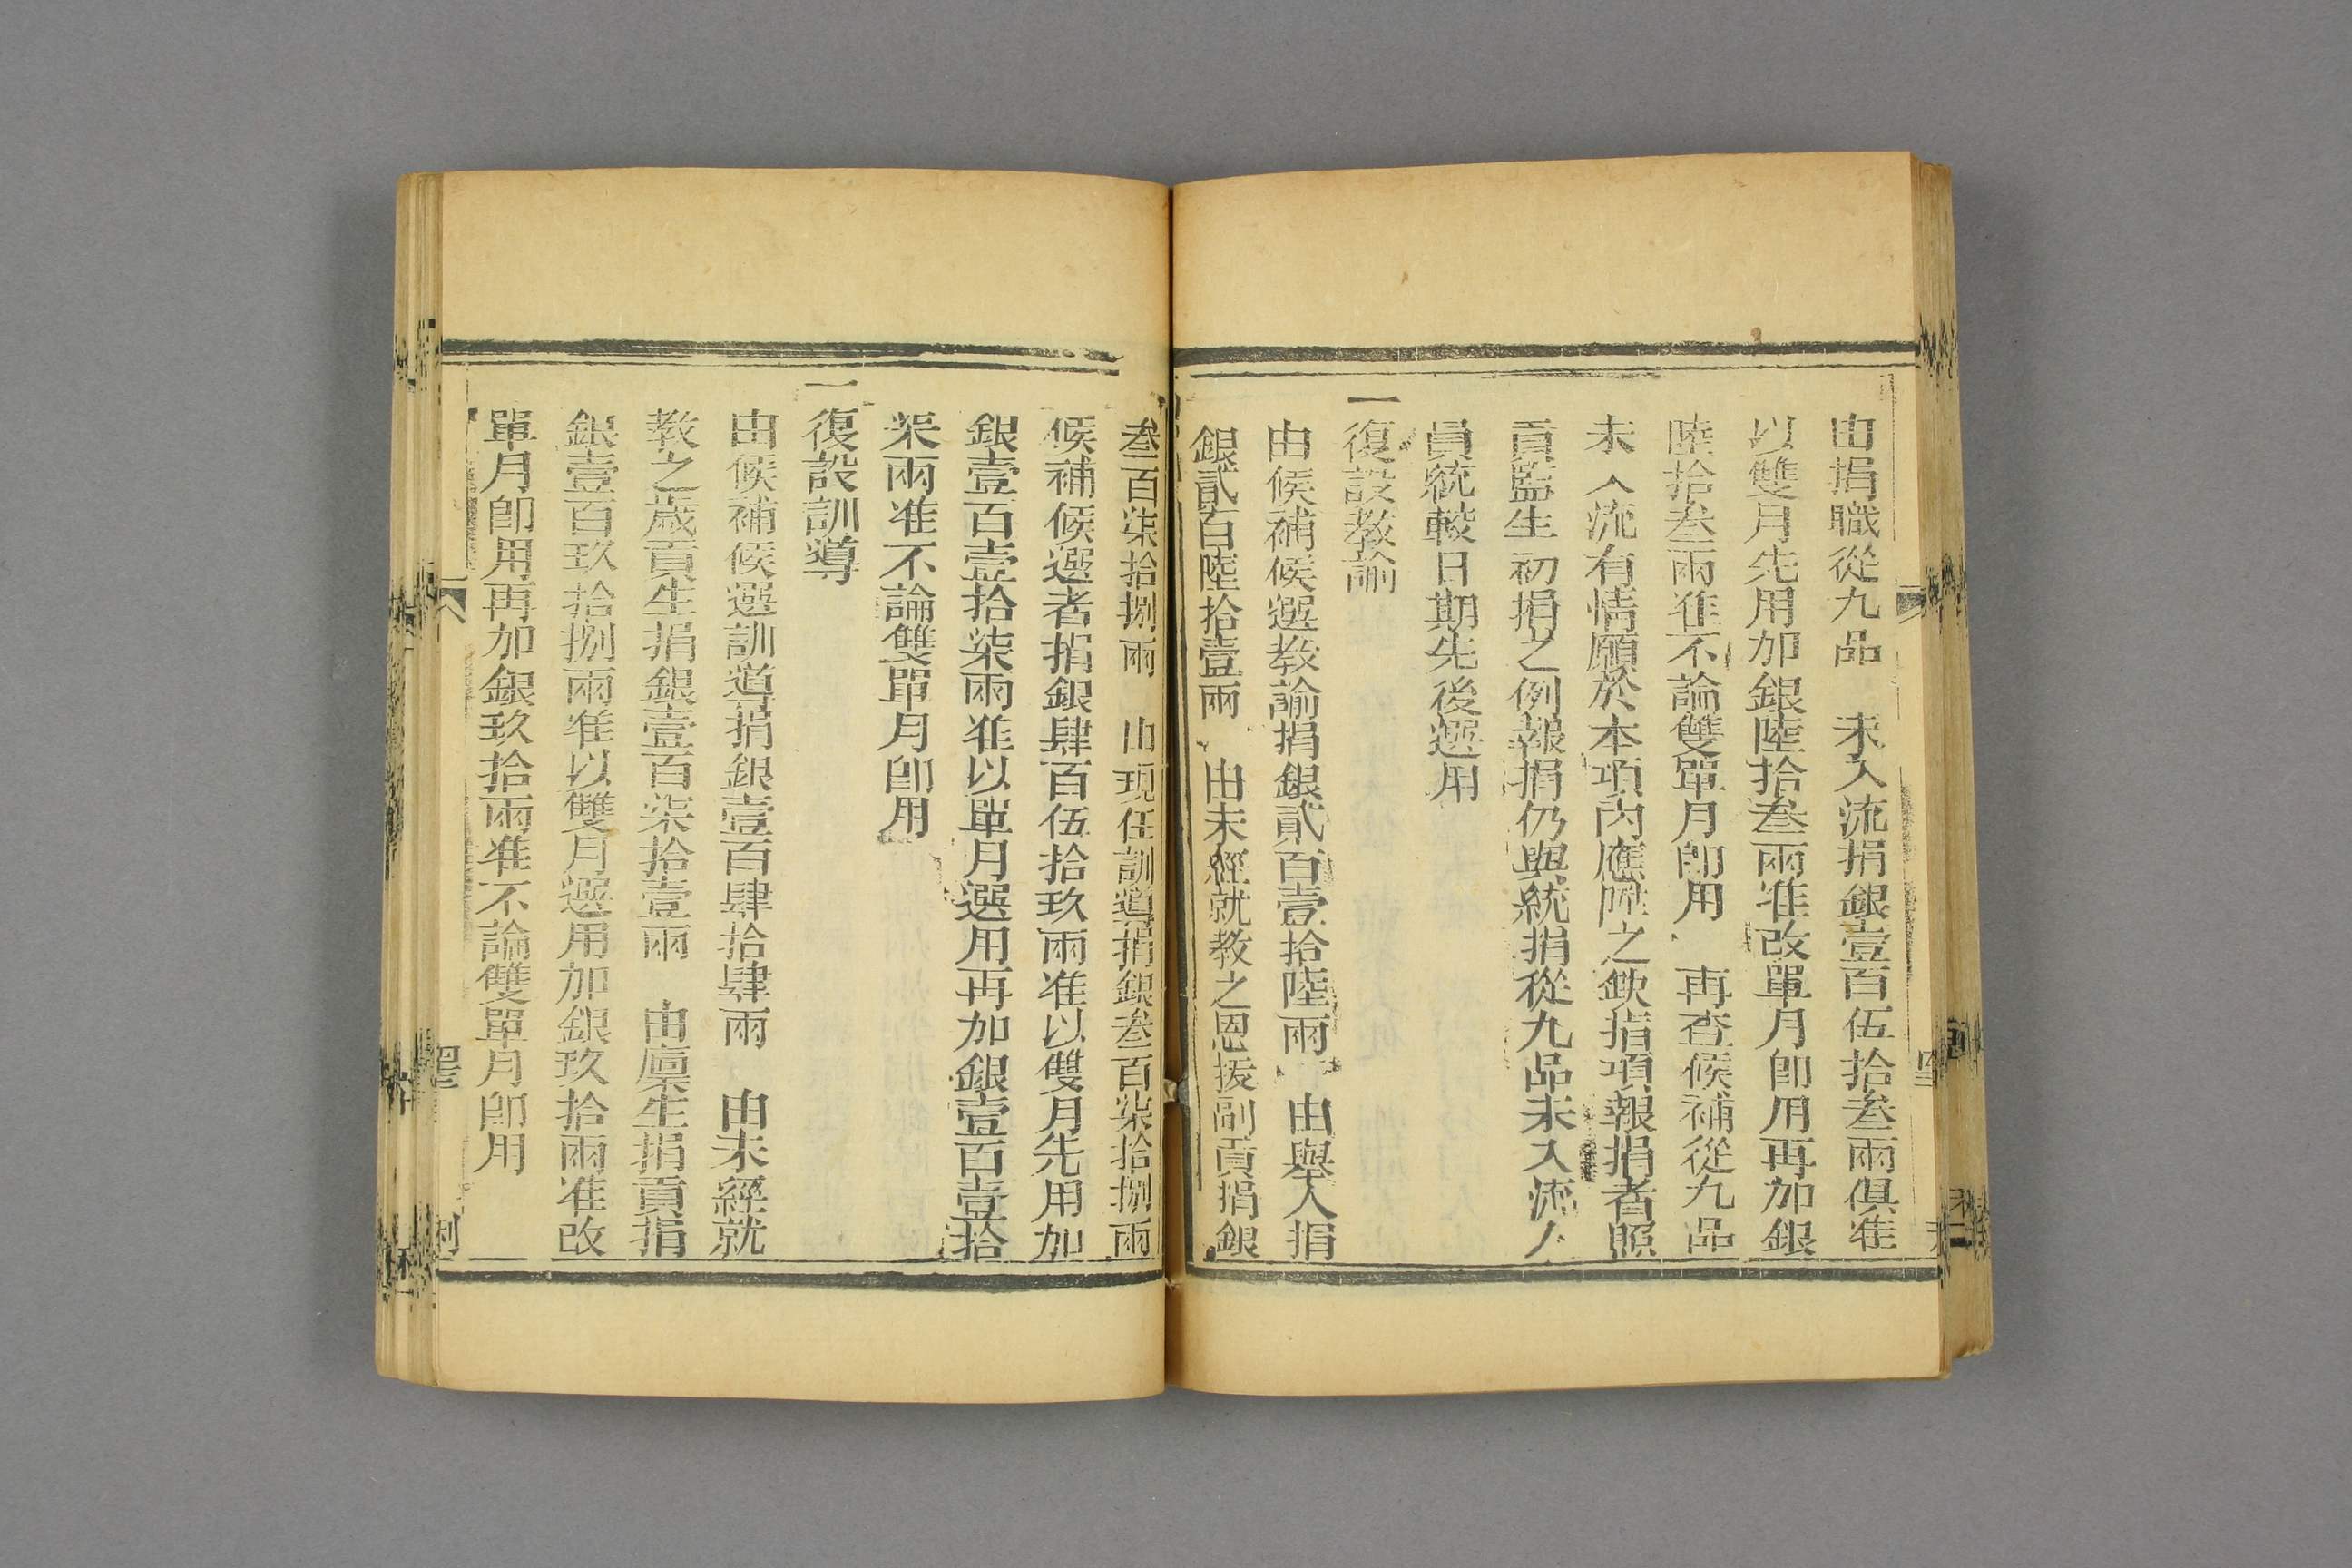 由捐職從九品　未入流捐銀壹百伍拾叁兩俱准
以雙月先用加銀陸拾叁兩准改單月卽用再加銀
陸拾叁兩准不論雙單月卽用　再查候補從九品
未入流有情願於本項內應陞之欽指項報捐者照
貢監生初捐之例報捐仍與統捐從九品未入流人
員統較日期先後選用
一復設教諭
由候補候選教諭捐銀貳百壹拾陸兩　由舉人捐
銀貳百陸拾壹兩　由未經就教之恩拔副貢捐銀
叁百柒拾捌兩　由現任訓導捐銀叁百柒拾捌兩
候補候選者捐銀肆百伍拾玖兩准以雙月先用加
銀壹百壹拾柒兩准以單月選用再加銀壹百壹拾
柒兩准不論雙單月卽用
一復設訓導
由候補候選訓導捐銀壹百肆拾肆兩　由未經就
教之歲貢生捐銀壹百柒拾壹兩　由廩生捐貢捐
銀壹百玖拾捌兩准以雙月選用加銀玖拾兩准改
單月卽用再加銀玖拾兩准不論雙單月卽用